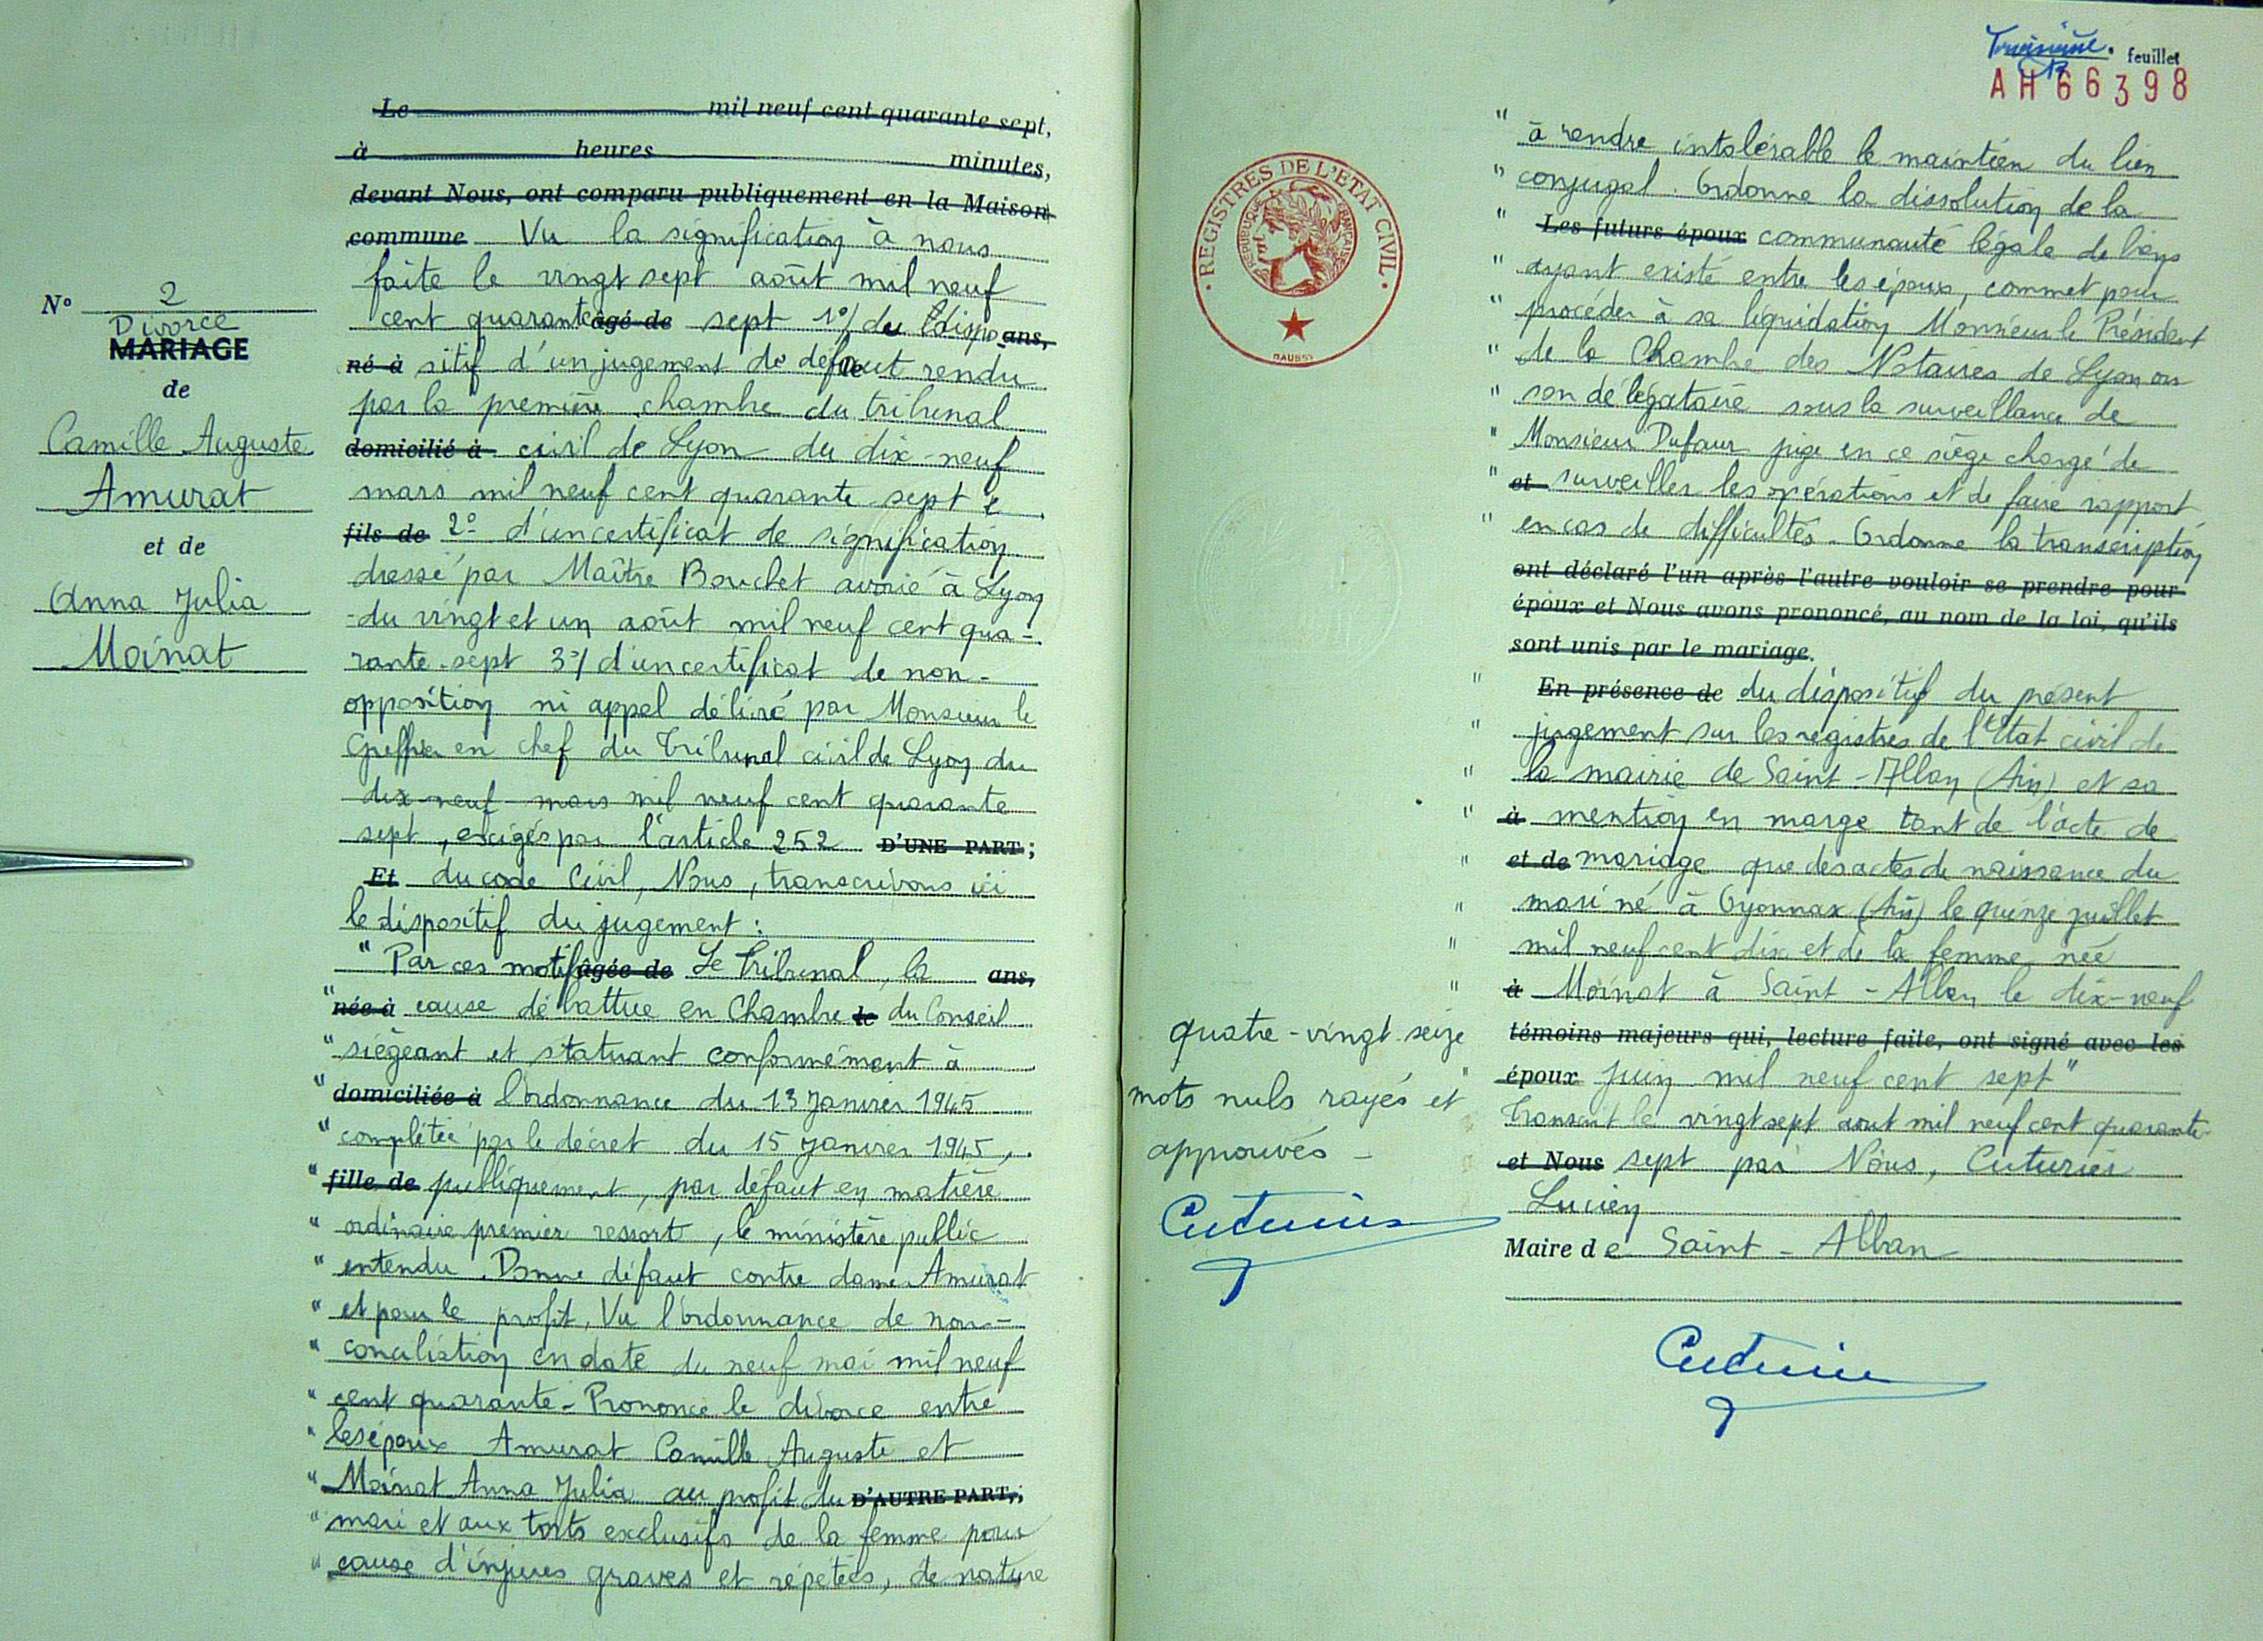 N° 2
Divorce
MARIAGE
de
Camille Auguste
Amurat
et de
Anna Julia
Moinat
Le mil neuf cent quarante sept,
à heures minutes,
devant Nous, ont comparu publiquement en la Maison
commune Vu la signification à nous
faite le vingt sept août mil neuf
cent quarante âgé de sept 1°/ du dispo ans,
né à sitif d'un jugement de défaut rendu
par la première chambre du tribunal
domicilié à civil de Lyon du dix-neuf
mars mil neuf cent quarante sept
fils de 2° d'un certificat de signification
dressé par Maître Bouchet avoué à Lyon
du vingt et un août mil neuf cent qua-
rante-sept 3°/ d'un certificat de non-
opposition ni appel délivré par Monsieur le
Greffier en chef du Tribunal civil de Lyon du
dix-neuf mars mil neuf cent quarante
sept, exigés par l'article 252 D'UNE PART;
Et du code Civil, Nous, transcrivons ici
le dispositif du jugement :
" Par ces motifs âgée de Le Tribunal, la ans,
" née à cause débattue en Chambre le du Conseil
" siégeant et statuant conformément à
" domiciliée à l'ordonnance du 13 Janvier 1945
" complétée par le décret du 15 Janvier 1945,
" fille de publiquement, par défaut en matière
" ordinaire premier ressort, le ministère public
" entendu. Donne défaut contre dame Amurat
" et pour le profit, Vu l'ordonnance de non-
" conciliation en date du neuf mai mil neuf
" cent quarante - Prononce le divorce entre
" les époux Amurat Camille Auguste et
" Moinat Anna Julia au profit du D'AUTRE PART,;
" mari et aux torts exclusifs de la femme pour
" cause d'injures graves et répétées, de nature
Troisième feuillet
AH66398
REGISTRES DE L'ETAT CIVIL
REPUBLIQUE FRANÇAISE
" à rendre intolérable le maintien du lien
" conjugal. Ordonne la dissolution de la
" Les futurs époux communauté légale de biens
" ayant existé entre les époux, commet pour
" procéder à sa liquidation Monsieur le Président
" de la Chambre des Notaires de Lyon ou
" son délégataire sous la surveillance de
" Monsieur Dufaur juge en ce siège chargé de
" et surveiller les opérations et de faire rapport
" en cas de difficultés - Ordonne la transcription
ont déclaré l'un après l'autre vouloir se prendre pour
époux et Nous avons prononcé, au nom de la loi, qu'ils
sont unis par le mariage.
" En présence de du dispositif du présent
" jugement sur les registres de l'Etat civil de
" la mairie de Saint-Alban (Ain) et sa
" à mention en marge tant de l'acte de
" et de mariage que des actes de naissance du
" mari né à Oyonnax (Ain) le quinze juillet
" mil neuf cent dix et de la femme née
" à Moinat à Saint-Alban le dix-neuf
témoins majeurs qui, lecture faite, ont signé avec les
" époux juin mil neuf cent sept"
Transcrit le vingt sept aout mil neuf cent quarante
et Nous sept par Nous, Cuturier
Lucien
Maire de Saint-Alban
quatre-vingt seize
mots nuls rayés et
approuvés -